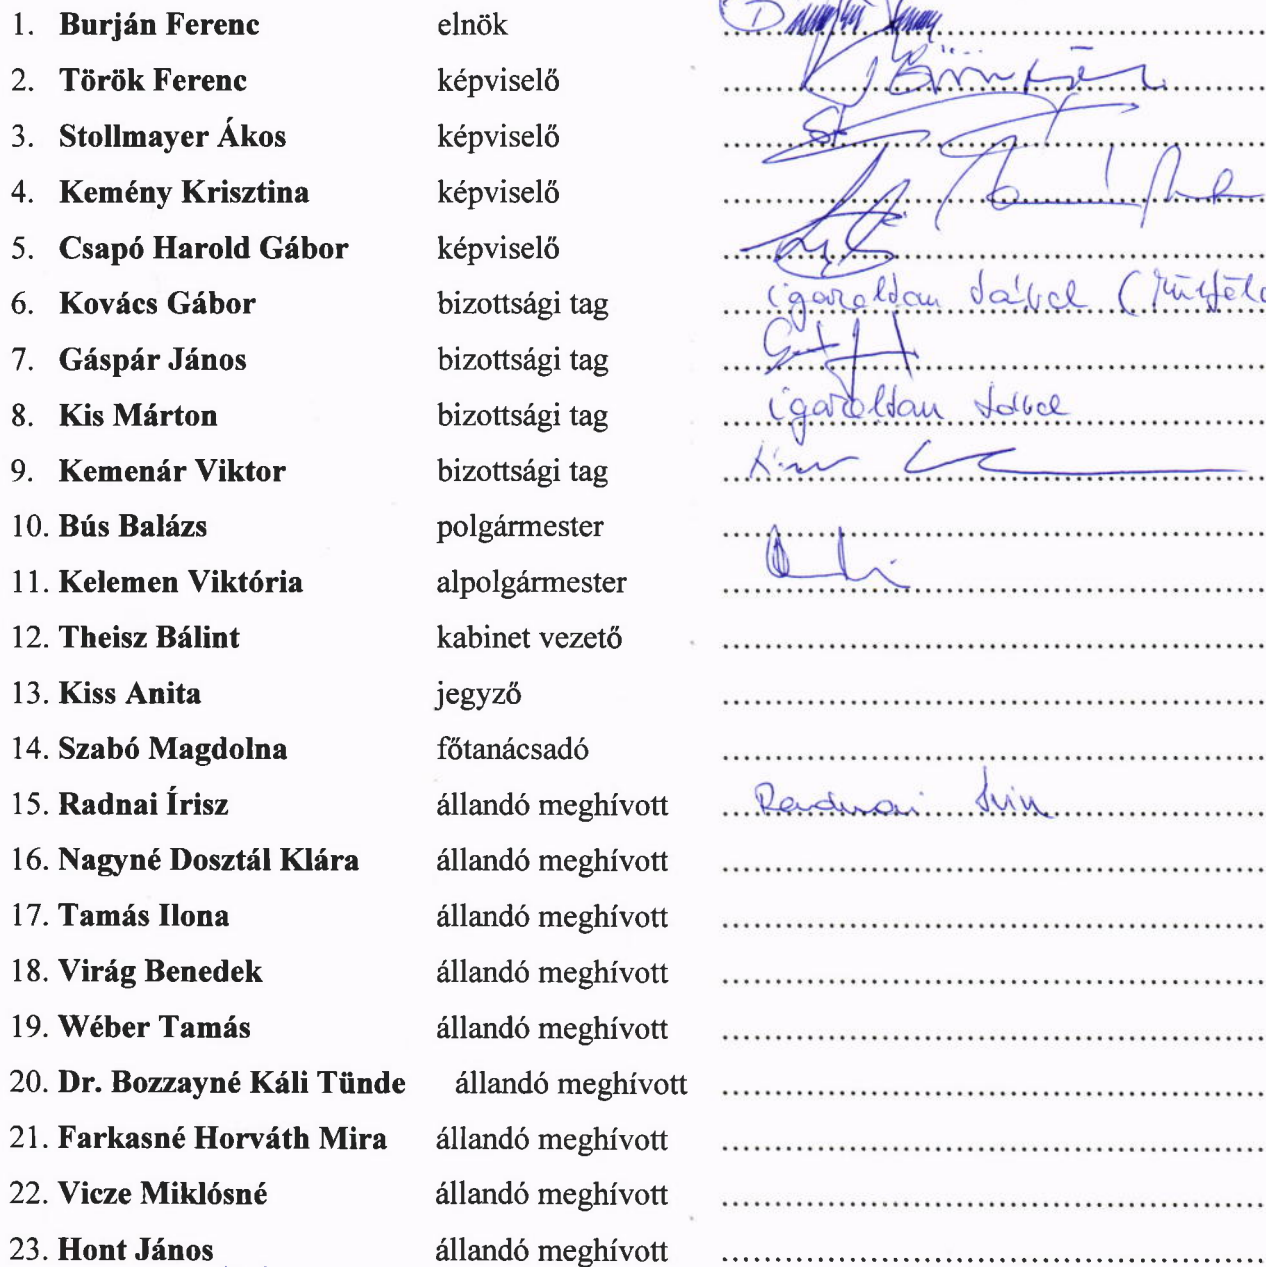 1. Burján Ferenc elnök
2. Török Ferenc képviselő
3. Stollmayer Ákos képviselő
4. Kemény Krisztina képviselő
5. Csapó Harold Gábor képviselő
6. Kovács Gábor bizottsági tag igazoltan távol
7. Gáspár János bizottsági tag
8. Kis Márton bizottsági tag igazoltan távol
9. Kemenár Viktor bizottsági tag
10. Bús Balázs polgármester
11. Kelemen Viktória alpolgármester
12. Theisz Bálint kabinet vezető
13. Kiss Anita jegyző
14. Szabó Magdolna főtanácsadó
15. Radnai Írisz állandó meghívott Radnai Írisz
16. Nagyné Dosztál Klára állandó meghívott
17. Tamás Ilona állandó meghívott
18. Virág Benedek állandó meghívott
19. Wéber Tamás állandó meghívott
20. Dr. Bozzayné Káli Tünde állandó meghívott
21. Farkasné Horváth Mira állandó meghívott
22. Vicze Miklósné állandó meghívott
23. Hont János állandó meghívott